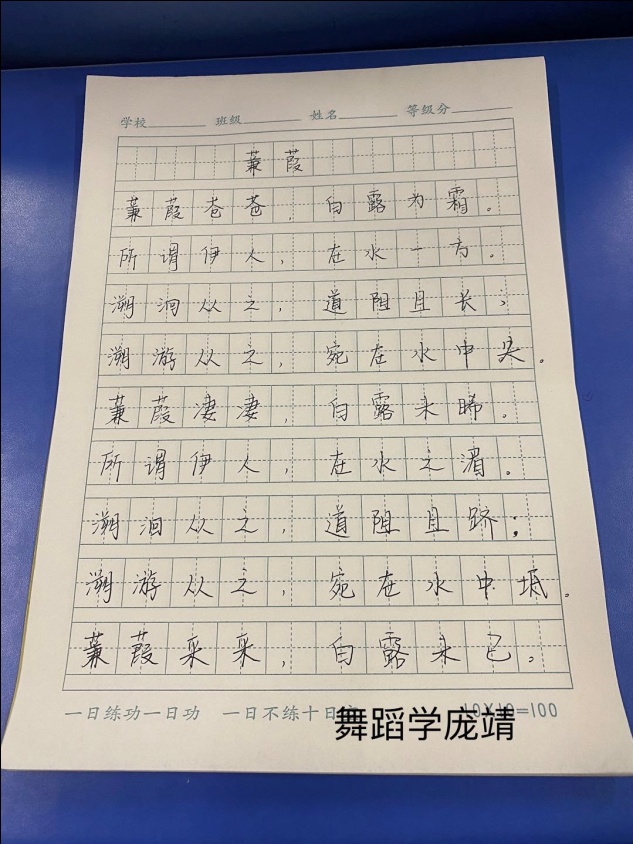 学校 班级 姓名 等级分
蒹葭
蒹葭苍苍，白露为霜。
所谓伊人，在水一方。
溯洄从之，道阻且长；
溯游从之，宛在水中央。
蒹葭凄凄，白露未晞。
所谓伊人，在水之湄。
溯洄从之，道阻且跻；
溯游从之，宛在水中坻。
蒹葭采采，白露未已。
一日练功一日功 一日不练十日 10X10=100
舞蹈学庞靖